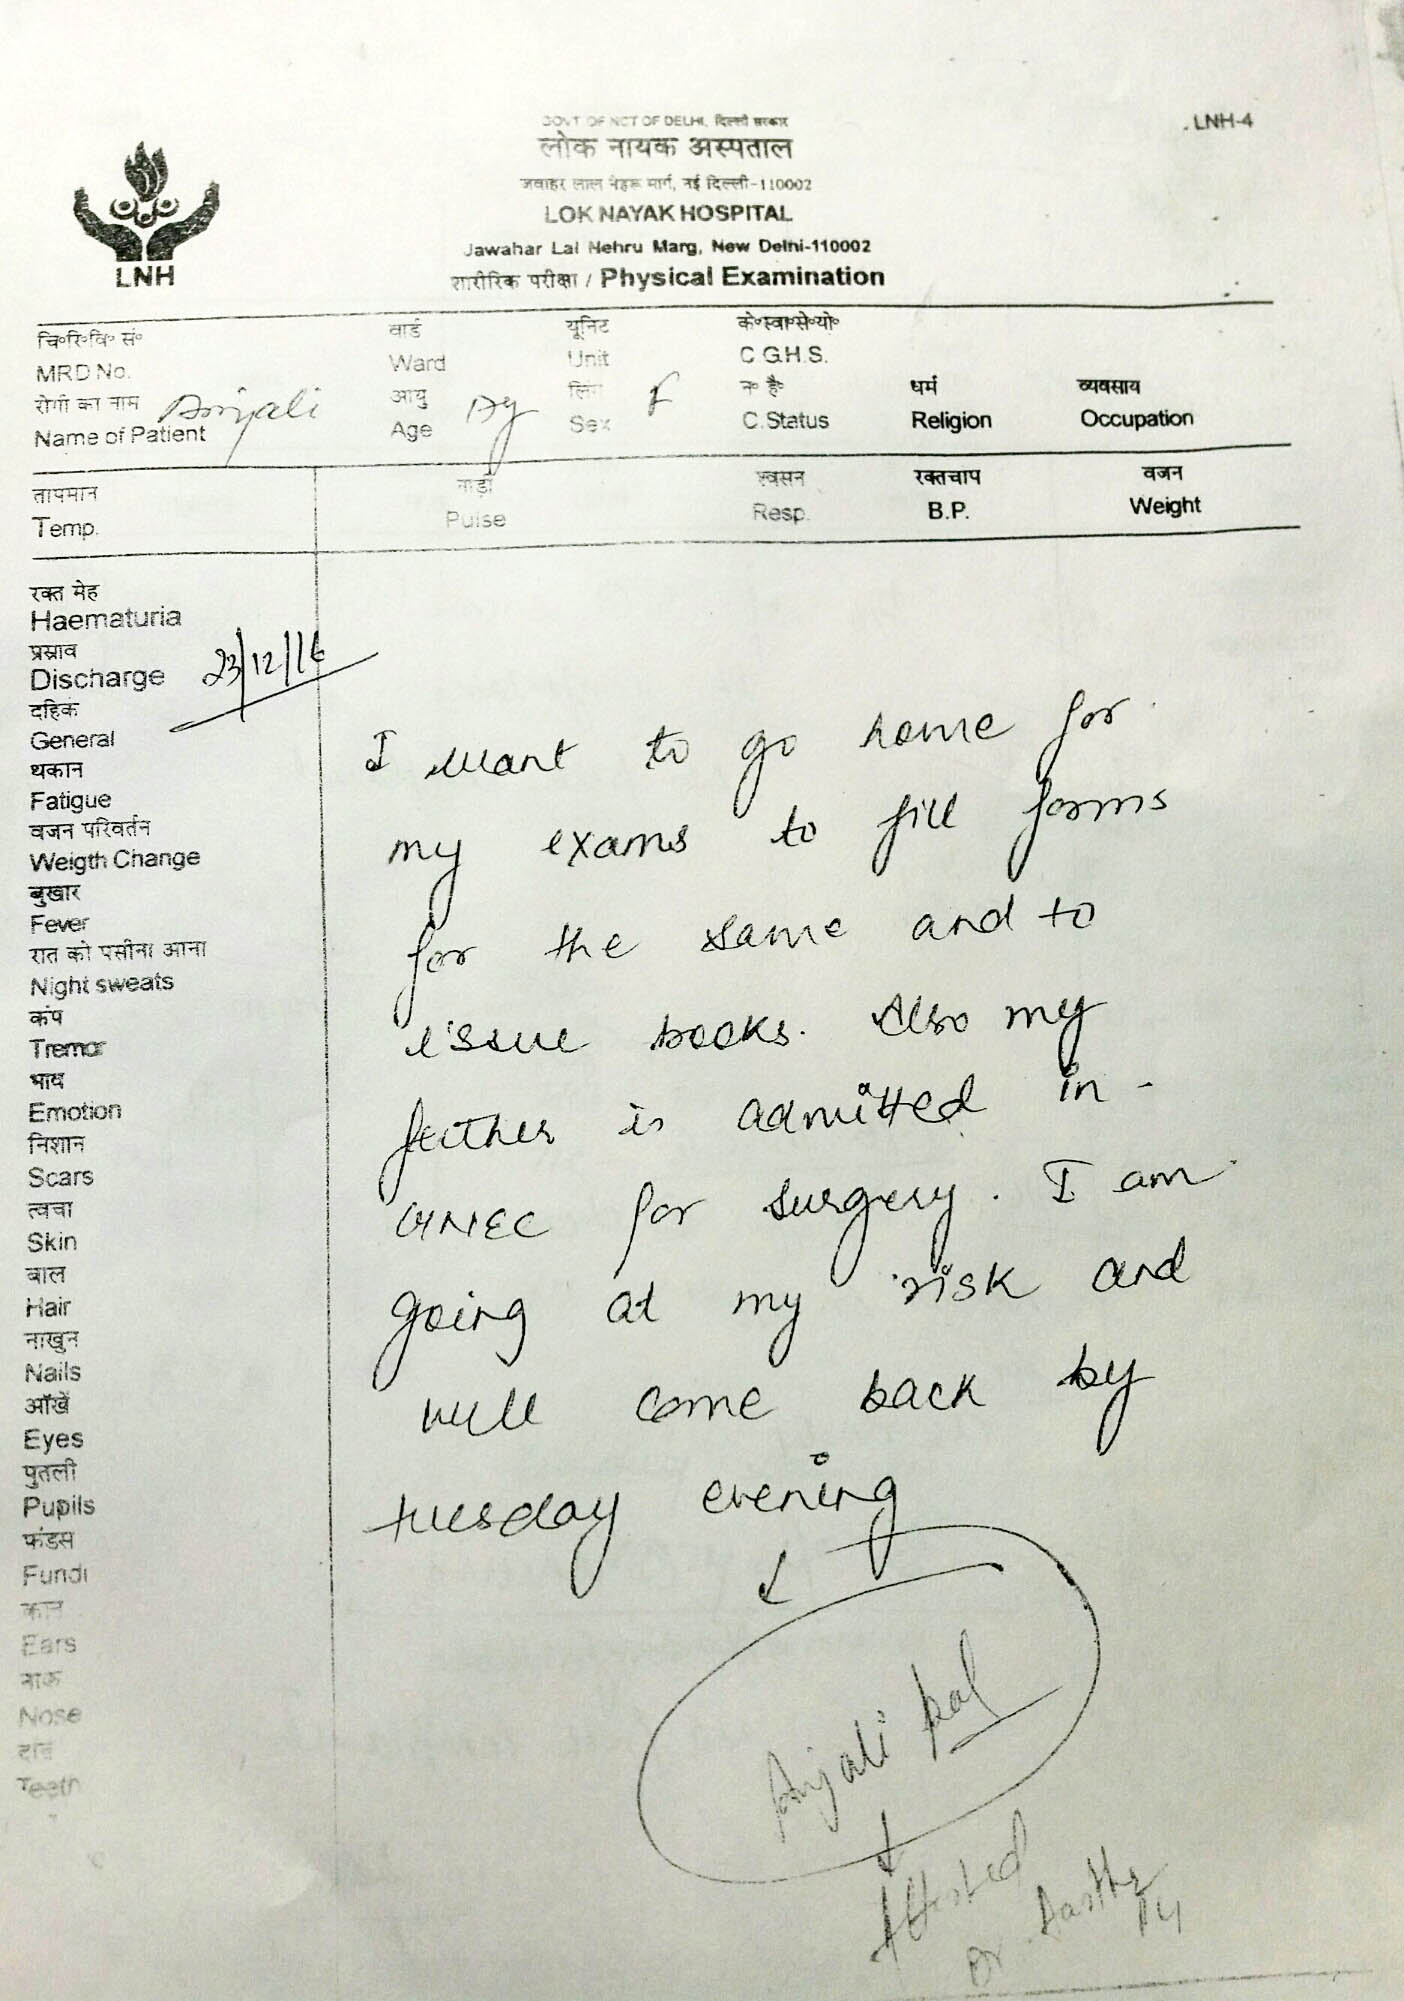 GOVT OF NCT OF DELHI, दिल्ली सरकार
LNH-4
लोक नायक अस्पताल
जवाहर लाल नेहरू मार्ग, नई दिल्ली-110002
LOK NAYAK HOSPITAL
Jawahar Lal Nehru Marg, New Delhi-110002
LNH
शारीरिक परीक्षा / Physical Examination
चि०रि०वि० सं० वार्ड यूनिट के०स्वा०से०यो०
MRD No. Ward Unit C.G.H.S.
रोगी का नाम Anjali आयु लिंग F न० है० धर्म व्यवसाय
Name of Patient Age Sex C.Status Religion Occupation
तापमान नाड़ी श्वसन रक्तचाप वजन
Temp. Pulse Resp. B.P. Weight
रक्त मेह
Haematuria
प्रस्राव
Discharge 23/12/16
दहिक
General
थकान
Fatigue
वजन परिवर्तन
Weigth Change
बुखार
Fever
रात को पसीना आना
Night sweats
कंप
Tremor
भाव
Emotion
निशान
Scars
त्वचा
Skin
बाल
Hair
नाखुन
Nails
आँखें
Eyes
पुतली
Pupils
फंडस
Fundi
कान
Ears
नाक
Nose
दांत
Teeth
I want to go home for
my exams to fill forms
for the same and to
issue books. Also my
father is admitted in
GNEC for surgery. I am
going at my risk and
will come back by
tuesday evening
Anjali
Attested
Dr. Aastha